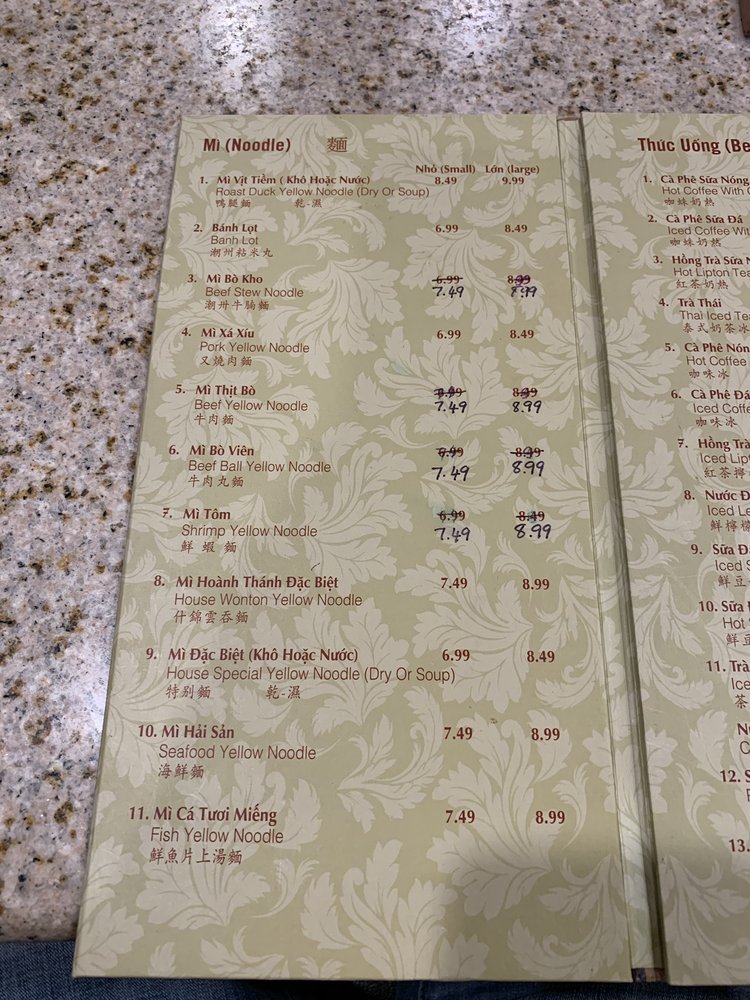 Mì (Noodle) 麵
Nhỏ (Small) Lớn (large)
1. Mì Vịt Tiềm ( Khô Hoặc Nước) 8.49 9.99
Roast Duck Yellow Noodle (Dry Or Soup)
鴨腿麵 乾-濕
2. Bánh Lọt 6.99 8.49
Banh Lot
潮州粘米丸
3. Mì Bò Kho 6.99
Beef Stew Noodle 7.49
潮州牛腩麵
4. Mì Xá Xíu 6.99 8.49
Pork Yellow Noodle
叉燒肉麵
5. Mì Thịt Bò
Beef Yellow Noodle 7.49 8.99
牛肉麵
6. Mì Bò Viên 6.99
Beef Ball Yellow Noodle 7.49 8.99
牛肉丸麵
7. Mì Tôm 6.99 8.49
Shrimp Yellow Noodle 7.49 8.99
鮮 蝦 麵
8. Mì Hoành Thánh Đặc Biệt 7.49 8.99
House Wonton Yellow Noodle
什錦雲吞麵
9. Mì Đặc Biệt (Khô Hoặc Nước) 6.99 8.49
House Special Yellow Noodle (Dry Or Soup)
特别麵 乾-濕
10. Mì Hải Sản 7.49 8.99
Seafood Yellow Noodle
海鮮麵
11. Mì Cá Tươi Miếng 7.49 8.99
Fish Yellow Noodle
鮮魚片上湯麵
Thức Uống (Be
1. Cà Phê Sữa Nóng
Hot Coffee With
咖啡奶熱
2. Cà Phê Sữa Đá
Iced Coffee Wit
咖啡奶熱
3. Hồng Trà Sữa N
Hot Lipton Tea
紅茶奶熱
4. Trà Thái
Thai Iced Tea
泰式奶茶冰
5. Cà Phê Nón
Hot Coffee
咖啡冰
6. Cà Phê Đá
Iced Coffe
咖啡冰
7. Hồng Trà
Iced Lipt
紅茶檸
8. Nước Đ
Iced Le
鮮檸檬
9. Sữa Đ
Iced S
鮮豆
10. Sữa
Hot
鮮豆
11. Trà
Ice
茶
12. S
13.